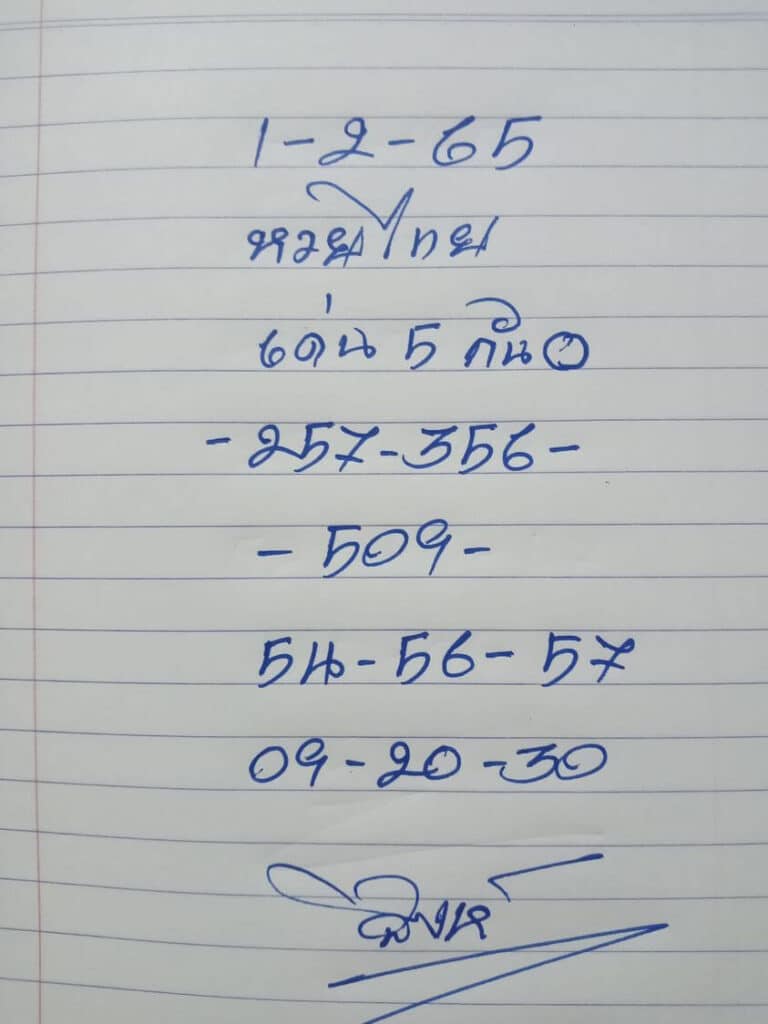 1-2-65
หวยไทย
เด่น 5 กัน 0
-257-356-
-509-
54-56-57
09-20-30
สิงห์